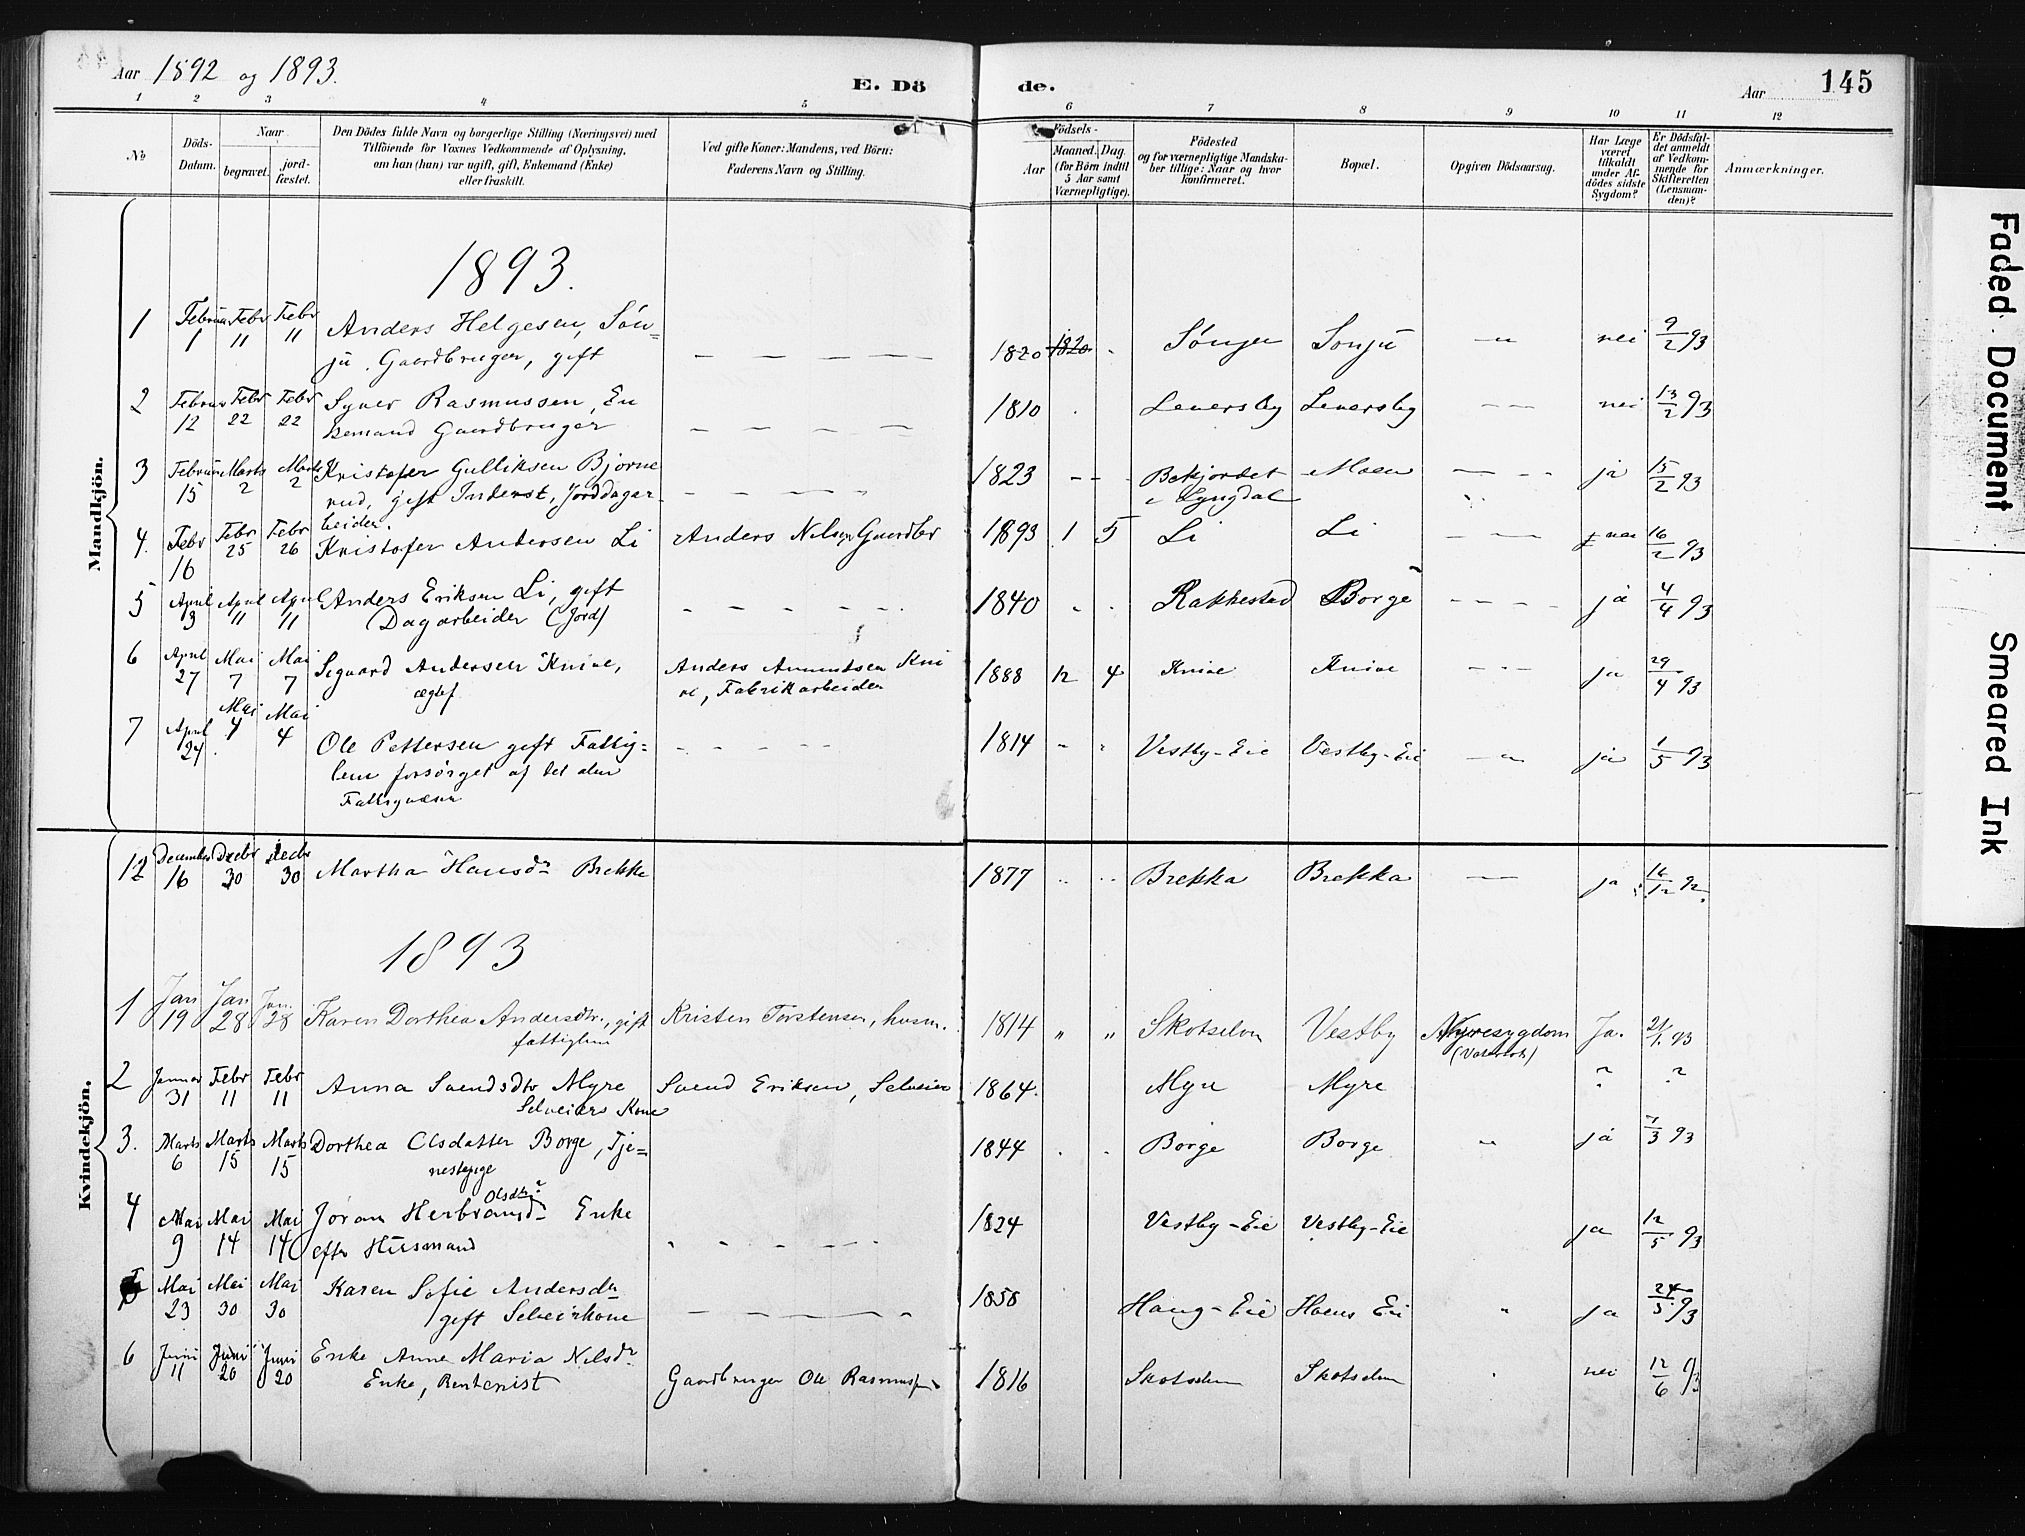 Aar 1892 og 1893.
E. Dö
de.
Aar
145
1 2 3 4 5 6 7 8 9 10 11 12
No
Döds-Datum.
Naar
begravet.
jord-fæstet.
Den Dödes fulde Navn og borgerlige Stilling (Næringsvei) med
Tilföiende for Voxnes Vedkommende af Oplysning,
om han (hun) var ugift, gift, Enkemand (Enke)
eller fraskilt.
Ved gifte Koner: Mandens, ved Börn:
Faderens Navn og Stilling.
Födsels-
Aar
Maaned. Dag.
(for Börn indtil
5 Aar samt
Værnepligtige).
Födested
og for værnepligtige Mandska-
ber tillige: Naar og hvor
konfirmeret.
Bopæl.
Opgiven Dödsaarsag.
Har Læge
været
tilkaldt
under Af-
dödes sidste
Sygdom?
Er Dödsfal-
det anmeldt
af Vedkom-
mende for
Skifteretten
(Lensman-
den)?
Anmærkninger.
Mandkjön.
1893.
1 Februar 1 Febr 11 Febr 11 Anders Helgesen, Søn-
ju, Gaardbruger, gift — — — — 1820 1820 Sonju nei 9/2 93
2 Februar 12 Febr 22 Febr 22 Syver Rasmussen, En
kemand Gaardbruger — — — — 1810 Leversby Leversby — — nei 13/2 93
3 Februar 15 Marts 2 Marts 2 Kristofer Gulliksen Bjørne
rud, gift Inderst, Jorddagar-
beider. — — — — 1823 Bekjordet
i Lyngdal Moen — — ja 15/2 93
4. Febr 16 Febr 25 Febr 26 Kristofer Andersen Li Anders Nilsen Gaardbr 1893 1 5 Li Li — — nei 16/2 93
5 April 3 April 11 April 11 Anders Eriksen Li, gift
Dagarbeider (Jord) — — — — 1840 Rakkestad Borge — — ja 4/4 93
6 April 27 Mai 7 Mai 7 Sigvard Andersen Knive,
ægtef. Anders Amundsen Kni
ve, Fabrikarbeider 1888 12 4 Knive Knive — — ja 29/4 93
7 April 24 Mai 4 Mai 4 Ole Pettersen gift Fattig=
lem forsørget af det
Fattigvæsen — — — — 1814 Vestby-Eie Vestby-Eie ja 1/5 93
Kvindekjön.
12 December 16 Decbr 30 Decbr 30 Martha Hansdr Brekke 1877 Brekka Brekka — ja 16/12 92.
1893
1 Jan 19 Jan 28 Jan. 28 Karen Dorthea Andersdtr., gift
fattiglem Kristen Torstensen, husm. 1814 " " Skotselven Vestby Nyresygdom
(Vatersot) Ja. 21/1. 93
2 Januar 31 Febr 11 Febr 11 Anna Svendsdtr Myre
Selveiers Kone Svend Eriksen, Selveier 1864. Myre Myre ? ?
3. Marts 6 Marts 15 Marts 15 Dorthea Olsdatter Borge, Tje=
nestepige 1844 Borge Borge ja 7/3 93
4 Mai 9 Mai 14 Mai 14 Jøran Herbransdr Olsdtr? Enke
efter Husmand — — — 1824 Vestby-Eie Vestby-Eie ja 12/5 93
5 Mai 23 Mai 30 Mai 30 Karen Sofie Andersdtr
gift Selveierkone — — — 1858 Haug-Eie Hoens Eie ja 24/5 93
6 Juni 11 Juni 20 Juni 20 Enke Anne Maria Nilsdr
Enke, Rentenist Gaardbruger Ole Rasmussen 1816 Skotselven Skotselven nei 12/6 93
Faded Document
Smeared Ink